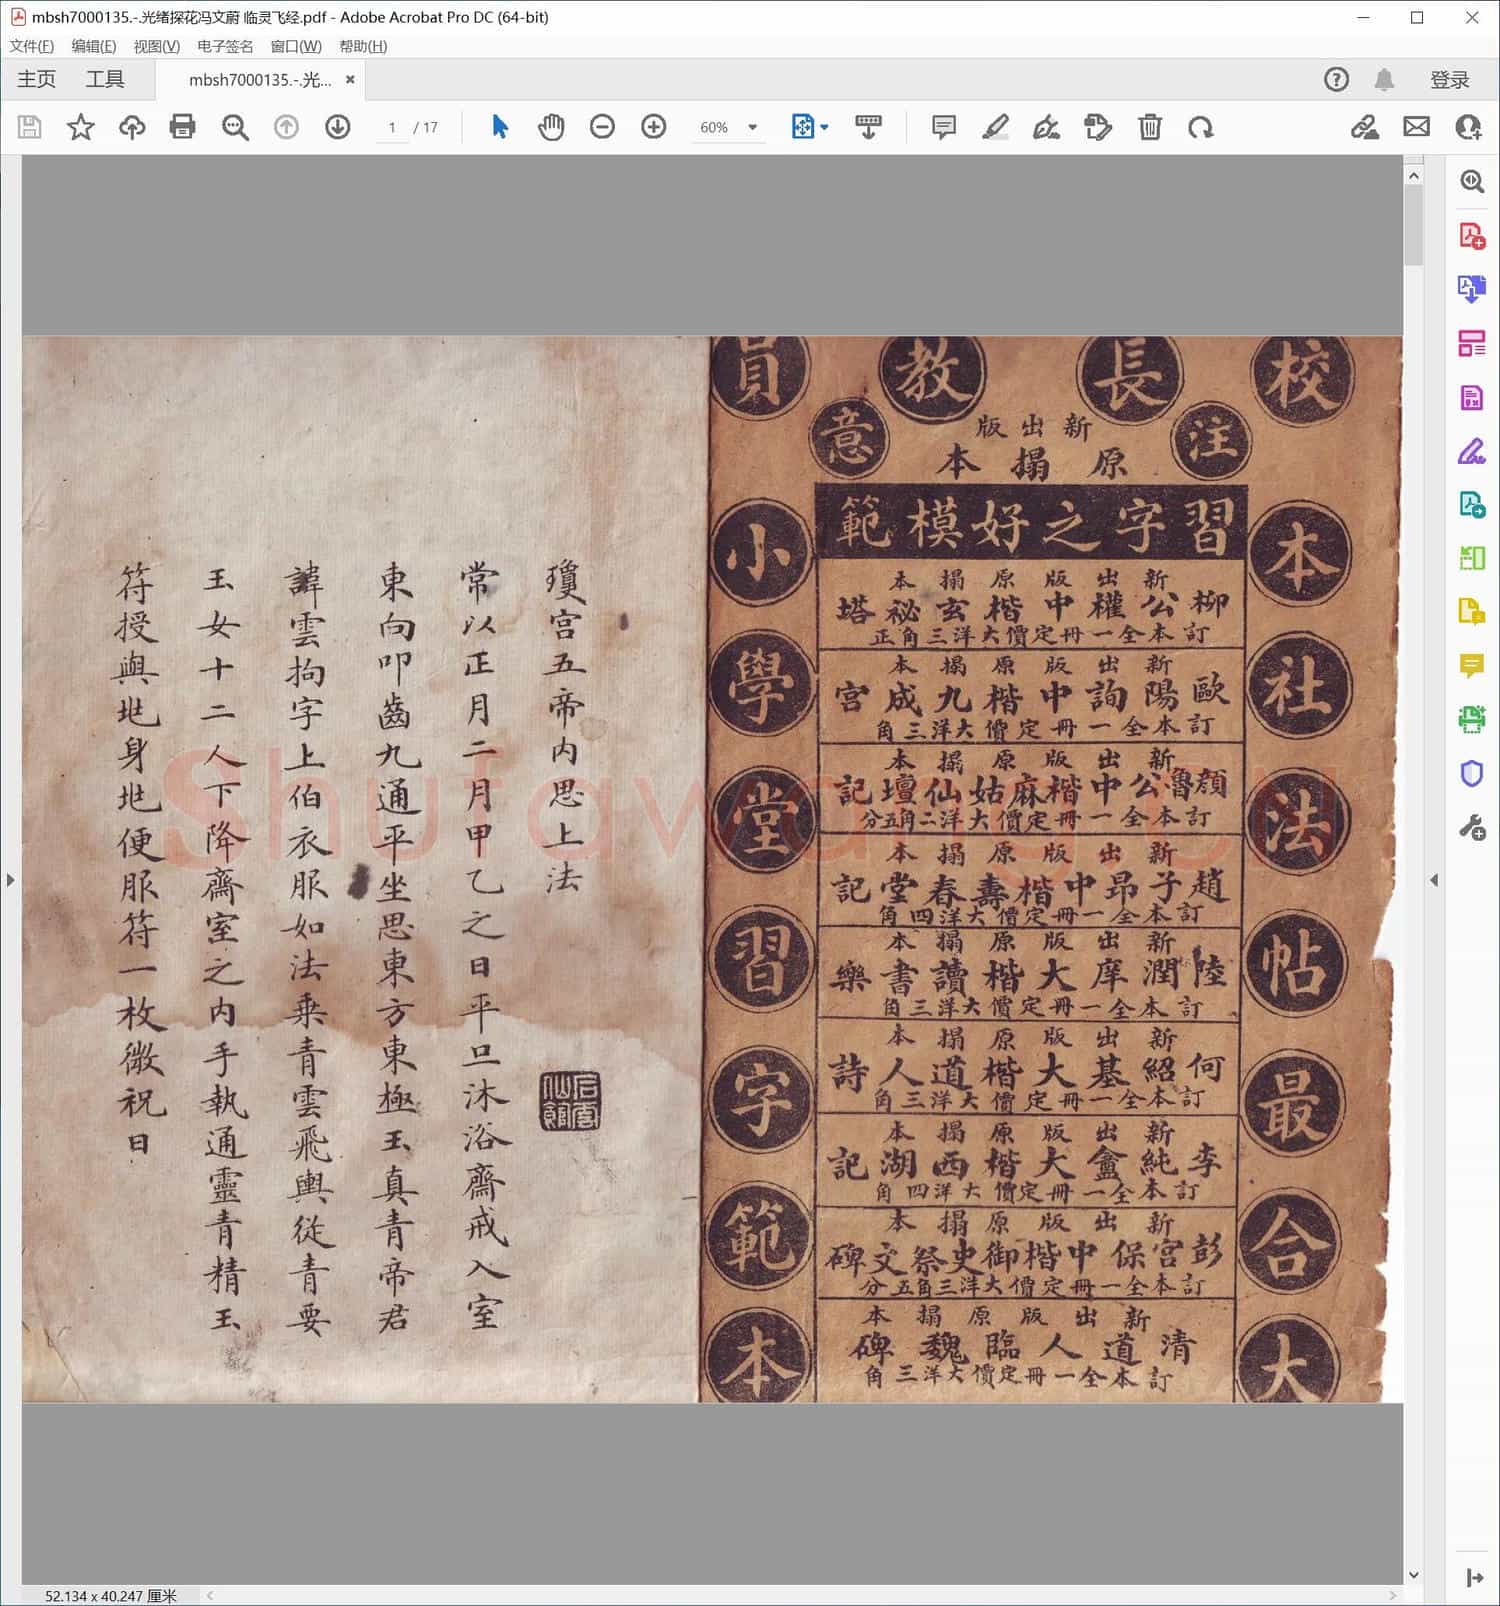 mbsh7000135.-.光绪探花冯文蔚 临灵飞经.pdf - Adobe Acrobat Pro DC (64-bit)
文件(F) 编辑(E) 视图(V) 电子签名 窗口(W) 帮助(H)
主页 工具 mbsh7000135.-.光... × 登录
1 / 17 60%
校長教員
注意
新出版
原搨本
習字之好模範
新出版原搨本
柳公權中楷玄祕塔
訂本全一冊定價大洋三角正
新出版原搨本
歐陽詢中楷九成宮
訂本全一冊定價大洋三角
新出版原搨本
顏魯公中楷麻姑仙壇記
訂本全一冊定價大洋二角五分
新出版原搨本
趙子昂中楷壽春堂記
訂本全一冊定價大洋四角
新出版原搨本
陸潤庠大楷讀書樂
訂本全一冊定價大洋三角
新出版原搨本
何紹基大楷道人詩
訂本全一冊定價大洋三角
新出版原搨本
李純盦大楷西湖記
訂本全一冊定價大洋四角
新出版原搨本
彭宮保中楷御史祭文碑
訂本全一冊定價大洋三角五分
新出版原搨本
清道人臨魏碑
訂本全一冊定價大洋三角
本社法帖最合大
小學堂習字範本
瓊宮五帝內思上法
常以正月二月甲乙之日平旦沐浴齋戒入室
東向叩齒九通平坐思東方東極玉真青帝君
諱雲拘字上伯衣服如法乘青雲飛輿從青要
玉女十二人下降齋室之內手執通靈青精玉
符授與兆身兆便服符一枚微祝曰
Shufawang.CN
52.134 x 40.247 厘米